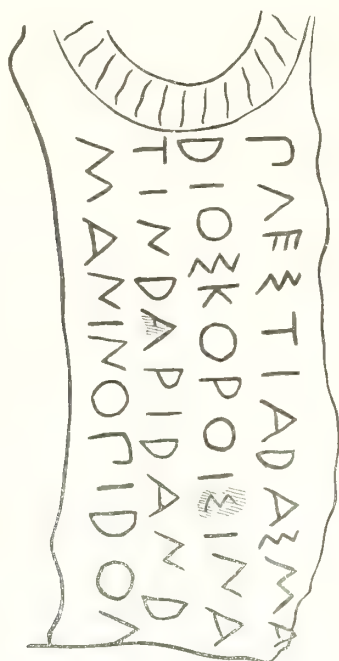 ΠΛΕΣΤΙΑΔΑΣΜΑ
ΔΙΟΣΚΟΡΟΙΣΙΝΑ
ΤΙΝΔΑΡΙΔΑΝΔ
ΜΑΝΙΝΟΠΙΔΟΛ